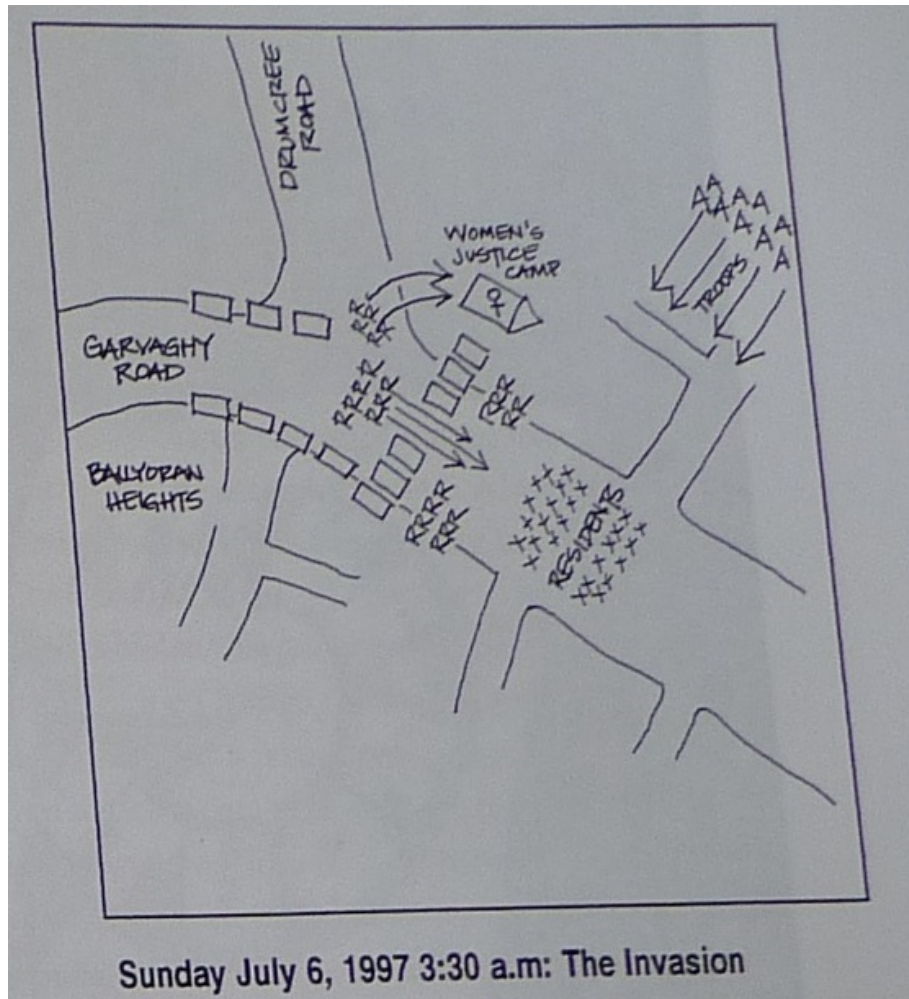 DRUMCREE
ROAD
WOMEN'S
JUSTICE
CAMP
AA
AAAA
AA
A
TROOPS
GARVAGHY
ROAD
RR
RR
RR
RRRR
RRR
RRR
RR
BALLYORAN
HEIGHTS
RRRR
RRR
RESIDENTS
Sunday July 6, 1997 3:30 a.m: The Invasion